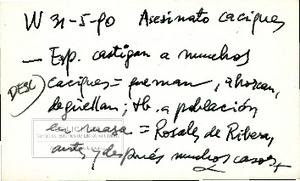 W 31-5-90 Asesinato caciques
— Esp. castigan a muchos
DESC caciques = queman, ahorcan,
degüellan; tb. a población
en masa = Rosales de Ribera,
antes y después muchos casos